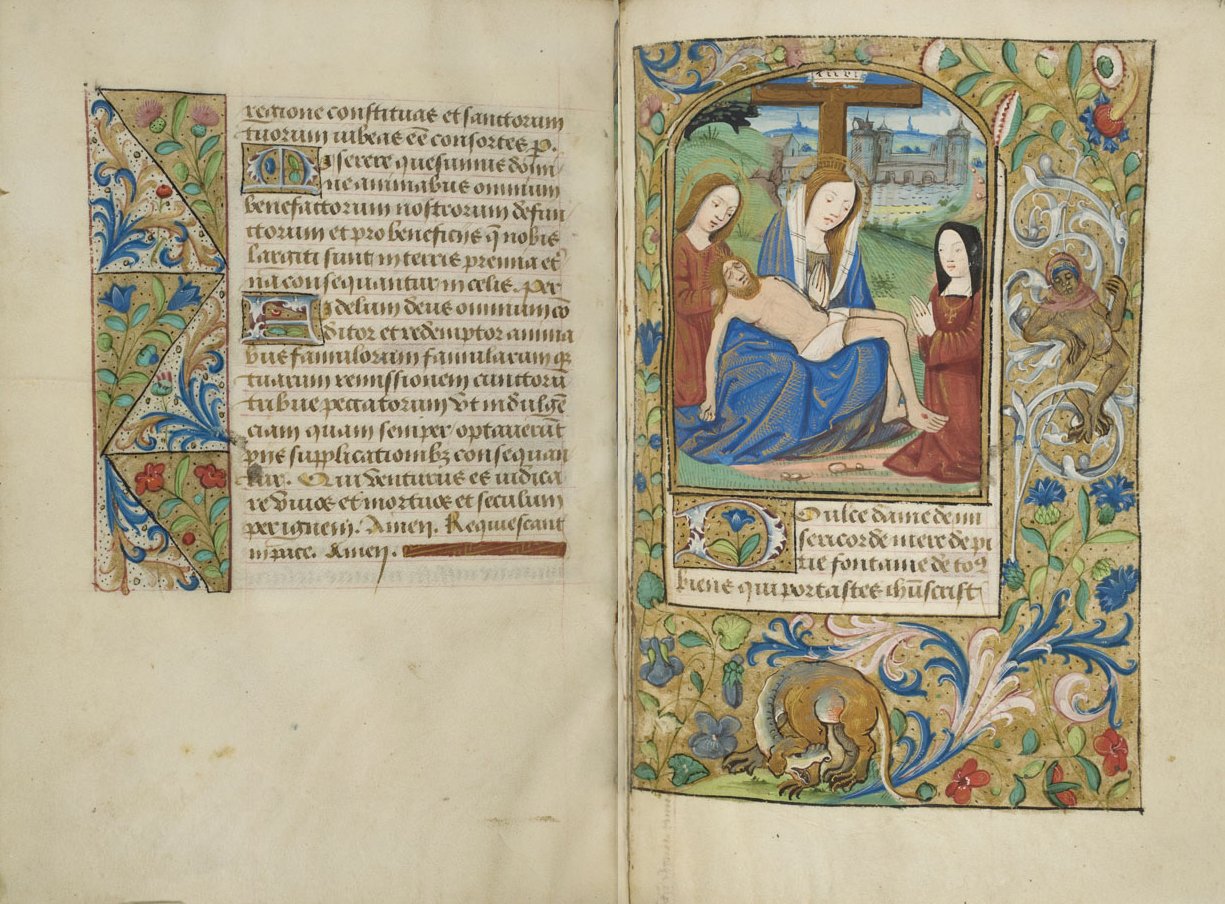 regione constituas et sanctorum
tuorum iubeas eē consortes p.
Miserere quesumus domi
ne animabus omnium
benefactorum nostrorum defun
ctorum et pro beneficiis q̄ nobis
largiti sunt in terris premia et̄
na consequantur in celis. Per
Fidelium deus omnium cō
ditor et redemptor anima
bus famulorum famularum q̄
tuarum remissionem cunctorū
tribue peccatorum Vt indulgē
ciam quam semper optauerūt
piis supplicationibꝫ consequan
tur. Qui venturus es iudica
re viuos et mortuos et seculum
per ignem. Amen. Requiescant
in pace. Amen.
INRI
Doulce dame de mi
sericorde mere de pi
tie fontaine de to9
biens qui portastes ihūscrist